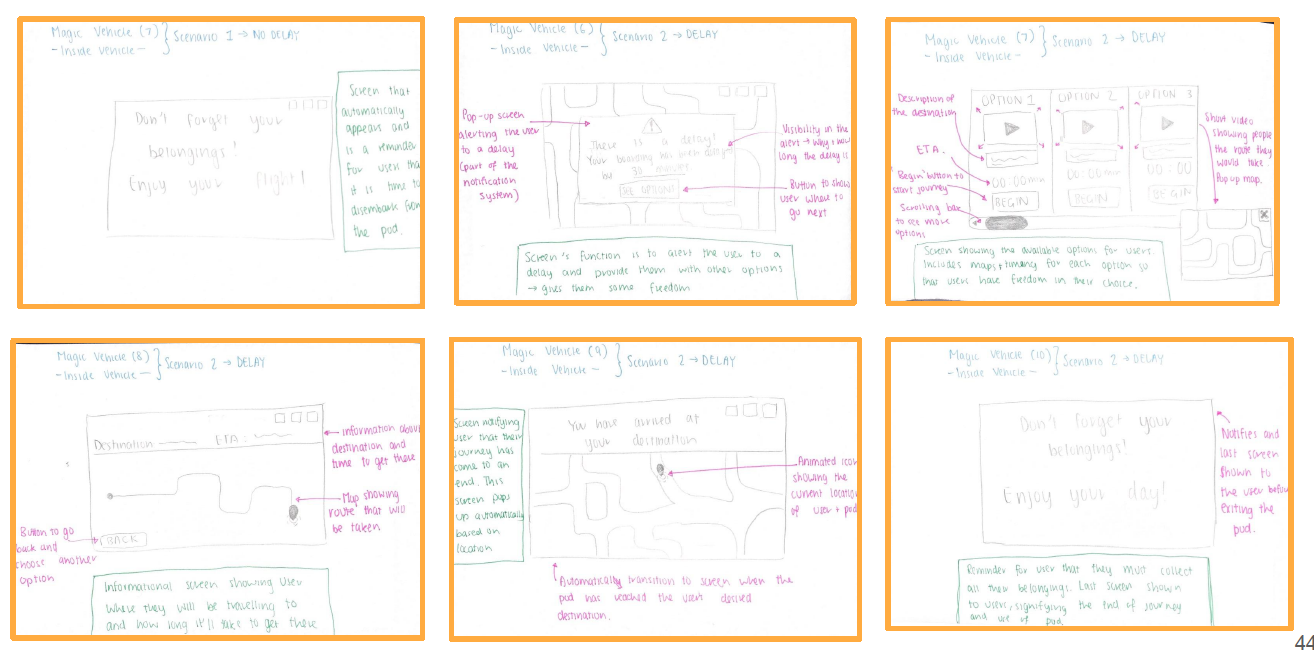 Magic Vehicle (7) } Scenario 1 → NO DELAY
- Inside Vehicle -
Don't forget your
belongings!
Enjoy your flight!
Screen that
automatically
appears and
is a reminder
for user tha
it is time to
disembark from
the pod.
Magic Vehicle (6) } Scenario 2 → DELAY
- Inside Vehicle -
Pop-up screen
alerting the user
to a delay
(part of the
notification
system)
There is a delay!
Your boarding has been delay
by 30 minutes
SEE OPTIONS
Visibility in the
alert → why & how
long the delay is
Button to show
user where to
go next
Screen's function is to alert the user to a
delay and provide them with other options
→ gives them some freedom
Magic Vehicle (7) } Scenario 2 → DELAY
- Inside Vehicle -
Description of
the destination
ETA.
'Begin' button to
start journey
Scrolling bar
to see more
options
OPTION 1
OPTION 2
OPTION 3
00:00min
00:00min
00:00
BEGIN
BEGIN
BEGIN
Short video
showing people
the route they
would take
Pop up map.
Screen showing the available options for users.
Includes maps + timing for each option so
that users have freedom in their choice.
Magic Vehicle (8) } Scenario 2 → DELAY
- Inside Vehicle -
Destination
ETA:
BACK
information abou
destination and
time to get there
Map showing
route that will
be taken
Button to go
back and
choose another
option
Informational screen showing user
where they will be travelling to
and how long it'll take to get there
Magic Vehicle (9) } Scenario 2 → DELAY
- Inside Vehicle -
Screen notifying
user that their
journey has
come to an
end. This
screen pops
up automatically
based on
location
You have arrived at
your destination
Animated icon
showing the
current location
of user + pod
Automatically transition to screen when the
pod has reached the users desired
destination.
Magic Vehicle (10) } Scenario 2 → DELAY
- Inside Vehicle -
Don't forget your
belongings!
Enjoy your day!
Notifies and
last screen
shown to
the user before
exiting the
pod.
Reminder for user that they must collect
all their belongings. Last screen shown
to users, signifying the end of journey
and use of pod.
44